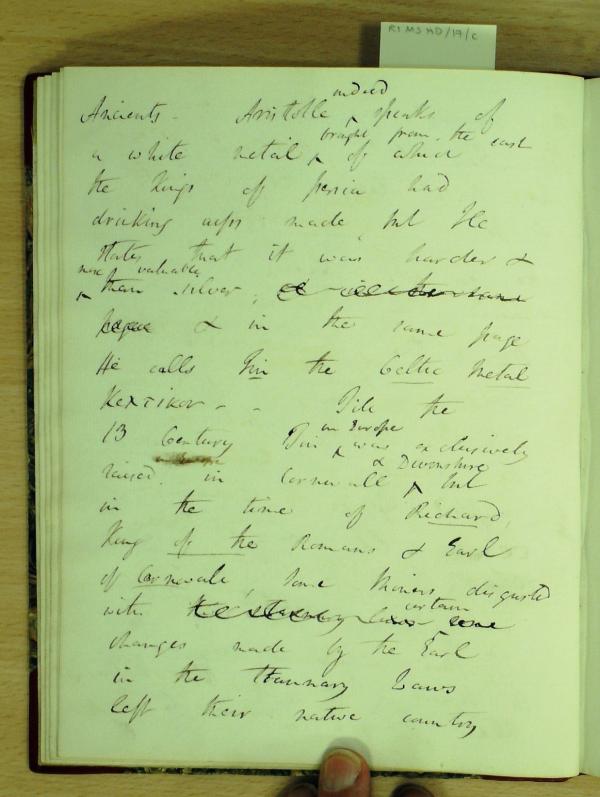 RI MS HD/17/C
indeed
Ancients - Aristotle ^ speaks of
brought from the east
a white metal ^ of which
the Kings of persia had
drinking cups made, but He
states that it was harder &
more valuable
^ than silver,
page & in the same page
He calls Tin the Celtic Metal
Κελτικον - - Till the
in Europe
13 Century Tin ^ was exclusively
in Europe
& Devonshire
raised in Cornwall ^ but
in the time of Richard,
King of the Romans & Earl
of Cornwale, some Miners disgusted
certain
with the stannary laws some
changes made by the Earl
in the Stannary Laws
left their native country